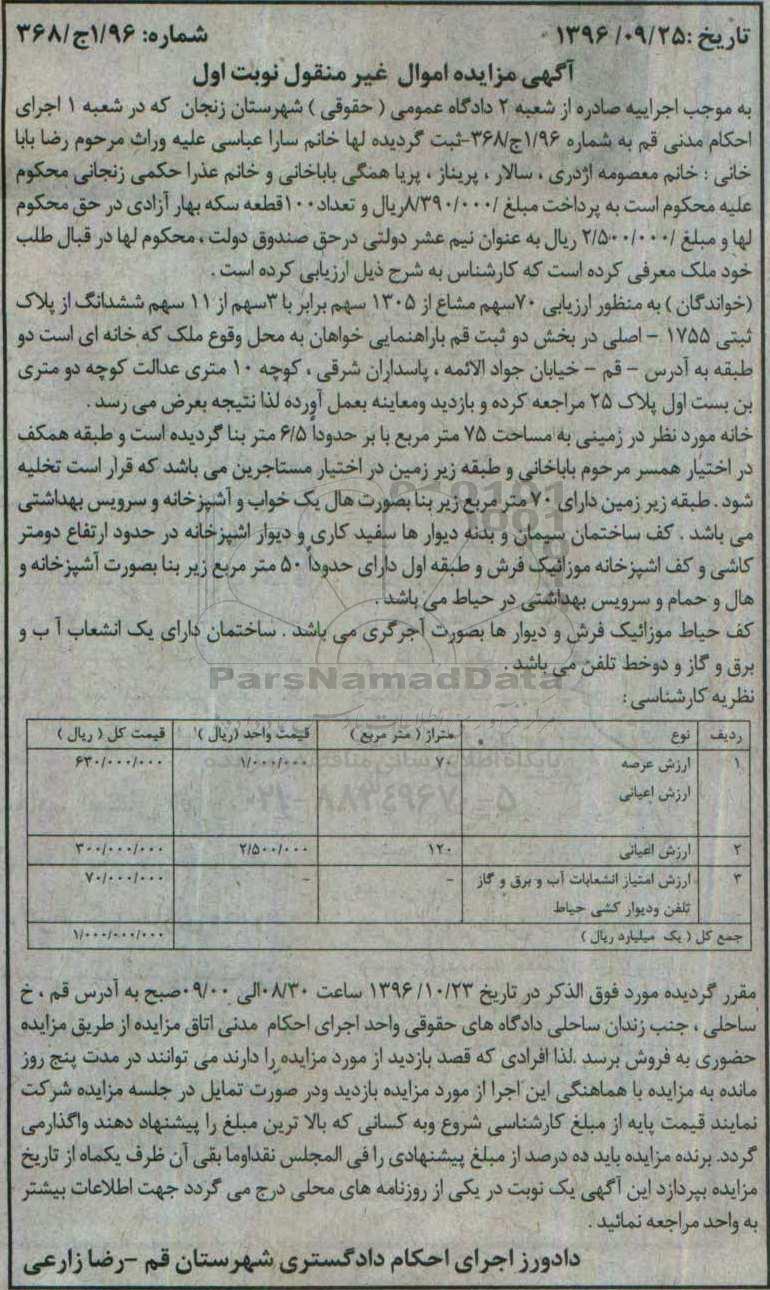 تاریخ :۱۳۹۶/۰۹/۲۵
شماره: ۱/۹۶ج/۳۶۸
آگهی مزایده اموال غیر منقول نوبت اول
به موجب اجراییه صادره از شعبه ۲ دادگاه عمومی ( حقوقی ) شهرستان زنجان که در شعبه ۱ اجرای
احکام مدنی قم به شماره ۱/۹۶ج/۳۶۸-ثبت گردیده لها خانم سارا عباسی علیه وراث مرحوم رضا بابا
خانی : خانم معصومه اژدری ، سالار ، پریناز ، پریا همگی باباخانی و خانم عذرا حکمی زنجانی محکوم
علیه محکوم است به پرداخت مبلغ /۸/۳۹۰/۰۰۰ریال و تعداد۱۰۰قطعه سکه بهار آزادی در حق محکوم
لها و مبلغ /۲/۵۰۰/۰۰۰ ریال به عنوان نیم عشر دولتی درحق صندوق دولت ، محکوم لها در قبال طلب
خود ملک معرفی کرده است که کارشناس به شرح ذیل ارزیابی کرده است .
(خواندگان ) به منظور ارزیابی ۷۰سهم مشاع از ۱۳۰۵ سهم برابر با ۳سهم از ۱۱ سهم ششدانگ از پلاک
ثبتی ۱۷۵۵ - اصلی در بخش دو ثبت قم باراهنمایی خواهان به محل وقوع ملک که خانه ای است دو
طبقه به آدرس - قم - خیابان جواد الائمه ، پاسداران شرقی ، کوچه ۱۰ متری عدالت کوچه دو متری
بن بست اول پلاک ۲۵ مراجعه کرده و بازدید ومعاینه بعمل آورده لذا نتیجه بعرض می رسد .
خانه مورد نظر در زمینی به مساحت ۷۵ متر مربع با بر حدوداً ۶/۵ متر بنا گردیده است و طبقه همکف
در اختیار همسر مرحوم باباخانی و طبقه زیر زمین در اختیار مستاجرین می باشد که قرار است تخلیه
شود . طبقه زیر زمین دارای ۷۰ متر مربع زیر بنا بصورت هال یک خواب و آشپزخانه و سرویس بهداشتی
می باشد . کف ساختمان سیمان و بدنه دیوار ها سفید کاری و دیوار اشپزخانه در حدود ارتفاع دومتر
کاشی و کف اشپزخانه موزائیک فرش و طبقه اول دارای حدوداً ۵۰ متر مربع زیر بنا بصورت آشپزخانه و
هال و حمام و سرویس بهداشتی در حیاط می باشد .
کف حیاط موزائیک فرش و دیوار ها بصورت آجرگری می باشد . ساختمان دارای یک انشعاب آ ب و
برق و گاز و دوخط تلفن می باشد .
ParsNamadData
نظریه کارشناسی :
ردیف نوع متراژ ( متر مربع ) قیمت واحد (ریال ) قیمت کل ( ریال )
۱ ارزش عرصه ۷۰ ۱/۰۰۰/۰۰۰ ۶۳۰/۰۰۰/۰۰۰
ارزش اعیانی
۲ ارزش اعیانی ۱۲۰ ۲/۵۰۰/۰۰۰ ۳۰۰/۰۰۰/۰۰۰
۳ ارزش امتیاز انشعابات آب و برق و گاز - - ۷۰/۰۰۰/۰۰۰
تلفن ودیوار کشی حیاط
جمع کل ( یک میلیارد ریال ) ۱/۰۰۰/۰۰۰/۰۰۰
مقرر گردیده مورد فوق الذکر در تاریخ ۱۳۹۶/۱۰/۲۳ ساعت ۰۸/۳۰الی ۰۹/۰۰صبح به آدرس قم ، خ
ساحلی ، جنب زندان ساحلی دادگاه های حقوقی واحد اجرای احکام مدنی اتاق مزایده از طریق مزایده
حضوری به فروش برسد .لذا افرادی که قصد بازدید از مورد مزایده را دارند می توانند در مدت پنج روز
مانده به مزایده با هماهنگی این اجرا از مورد مزایده بازدید ودر صورت تمایل در جلسه مزایده شرکت
نمایند قیمت پایه از مبلغ کارشناسی شروع وبه کسانی که بالا ترین مبلغ را پیشنهاد دهند واگذارمی
گردد. برنده مزایده باید ده درصد از مبلغ پیشنهادی را فی المجلس نقداوما بقی آن ظرف یکماه از تاریخ
مزایده بپردازد این آگهی یک نوبت در یکی از روزنامه های محلی درج می گردد جهت اطلاعات بیشتر
به واحد مراجعه نمائید .
دادورز اجرای احکام دادگستری شهرستان قم -رضا زارعی